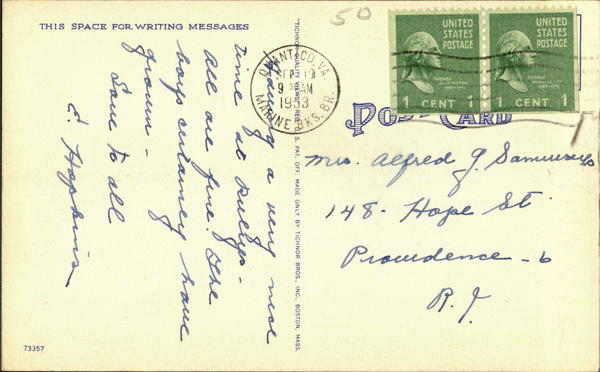 THIS SPACE FOR WRITING MESSAGES
Having a very nice
time at
All are fine. The
boys certainly have
grown -
Love to all
E. Hopkins
73357
"TICHNOR QUALITY VIEWS," REG. U. S. PAT. OFF. MADE ONLY BY TICHNOR BROS., INC., BOSTON, MASS.
50
QUANTICO, VA.
SEP
9 AM
1953
MARINE BKS. BR.
UNITED
STATES
POSTAGE
GEORGE
WASHINGTON
1 CENT 1
UNITED
STATES
POSTAGE
GEORGE
WASHINGTON
1 CENT 1
POST CARD
Mrs. Alfred J.
148. Hope St
Providence - 6
R. I.